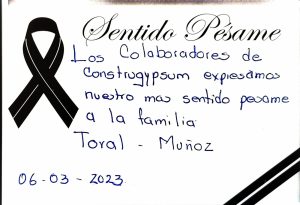 Sentido Pésame
Los Colaboradores de
Construgypsum expresamos
nuestro mas sentido pesame
a la familia
Toral - Muñoz
06-03-2023